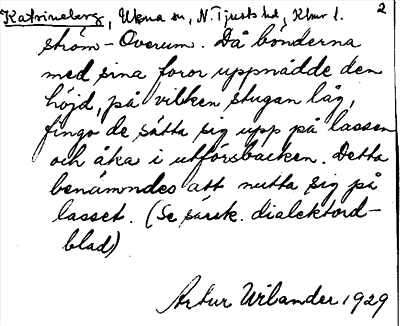 Katrineberg, Ukna sn, N. Tjusts hd, Klmr l. 2
ström-Överum. Då bönderna
med sina foror uppnådde den
höjd, på vilken stugan låg,
fingo de sätta sig upp på lassen
och åka i utförsbacken. Detta
benämndes att nutta sig på
lasset. (Se särsk. dialektord-
blad)
Artur Wilander 1929